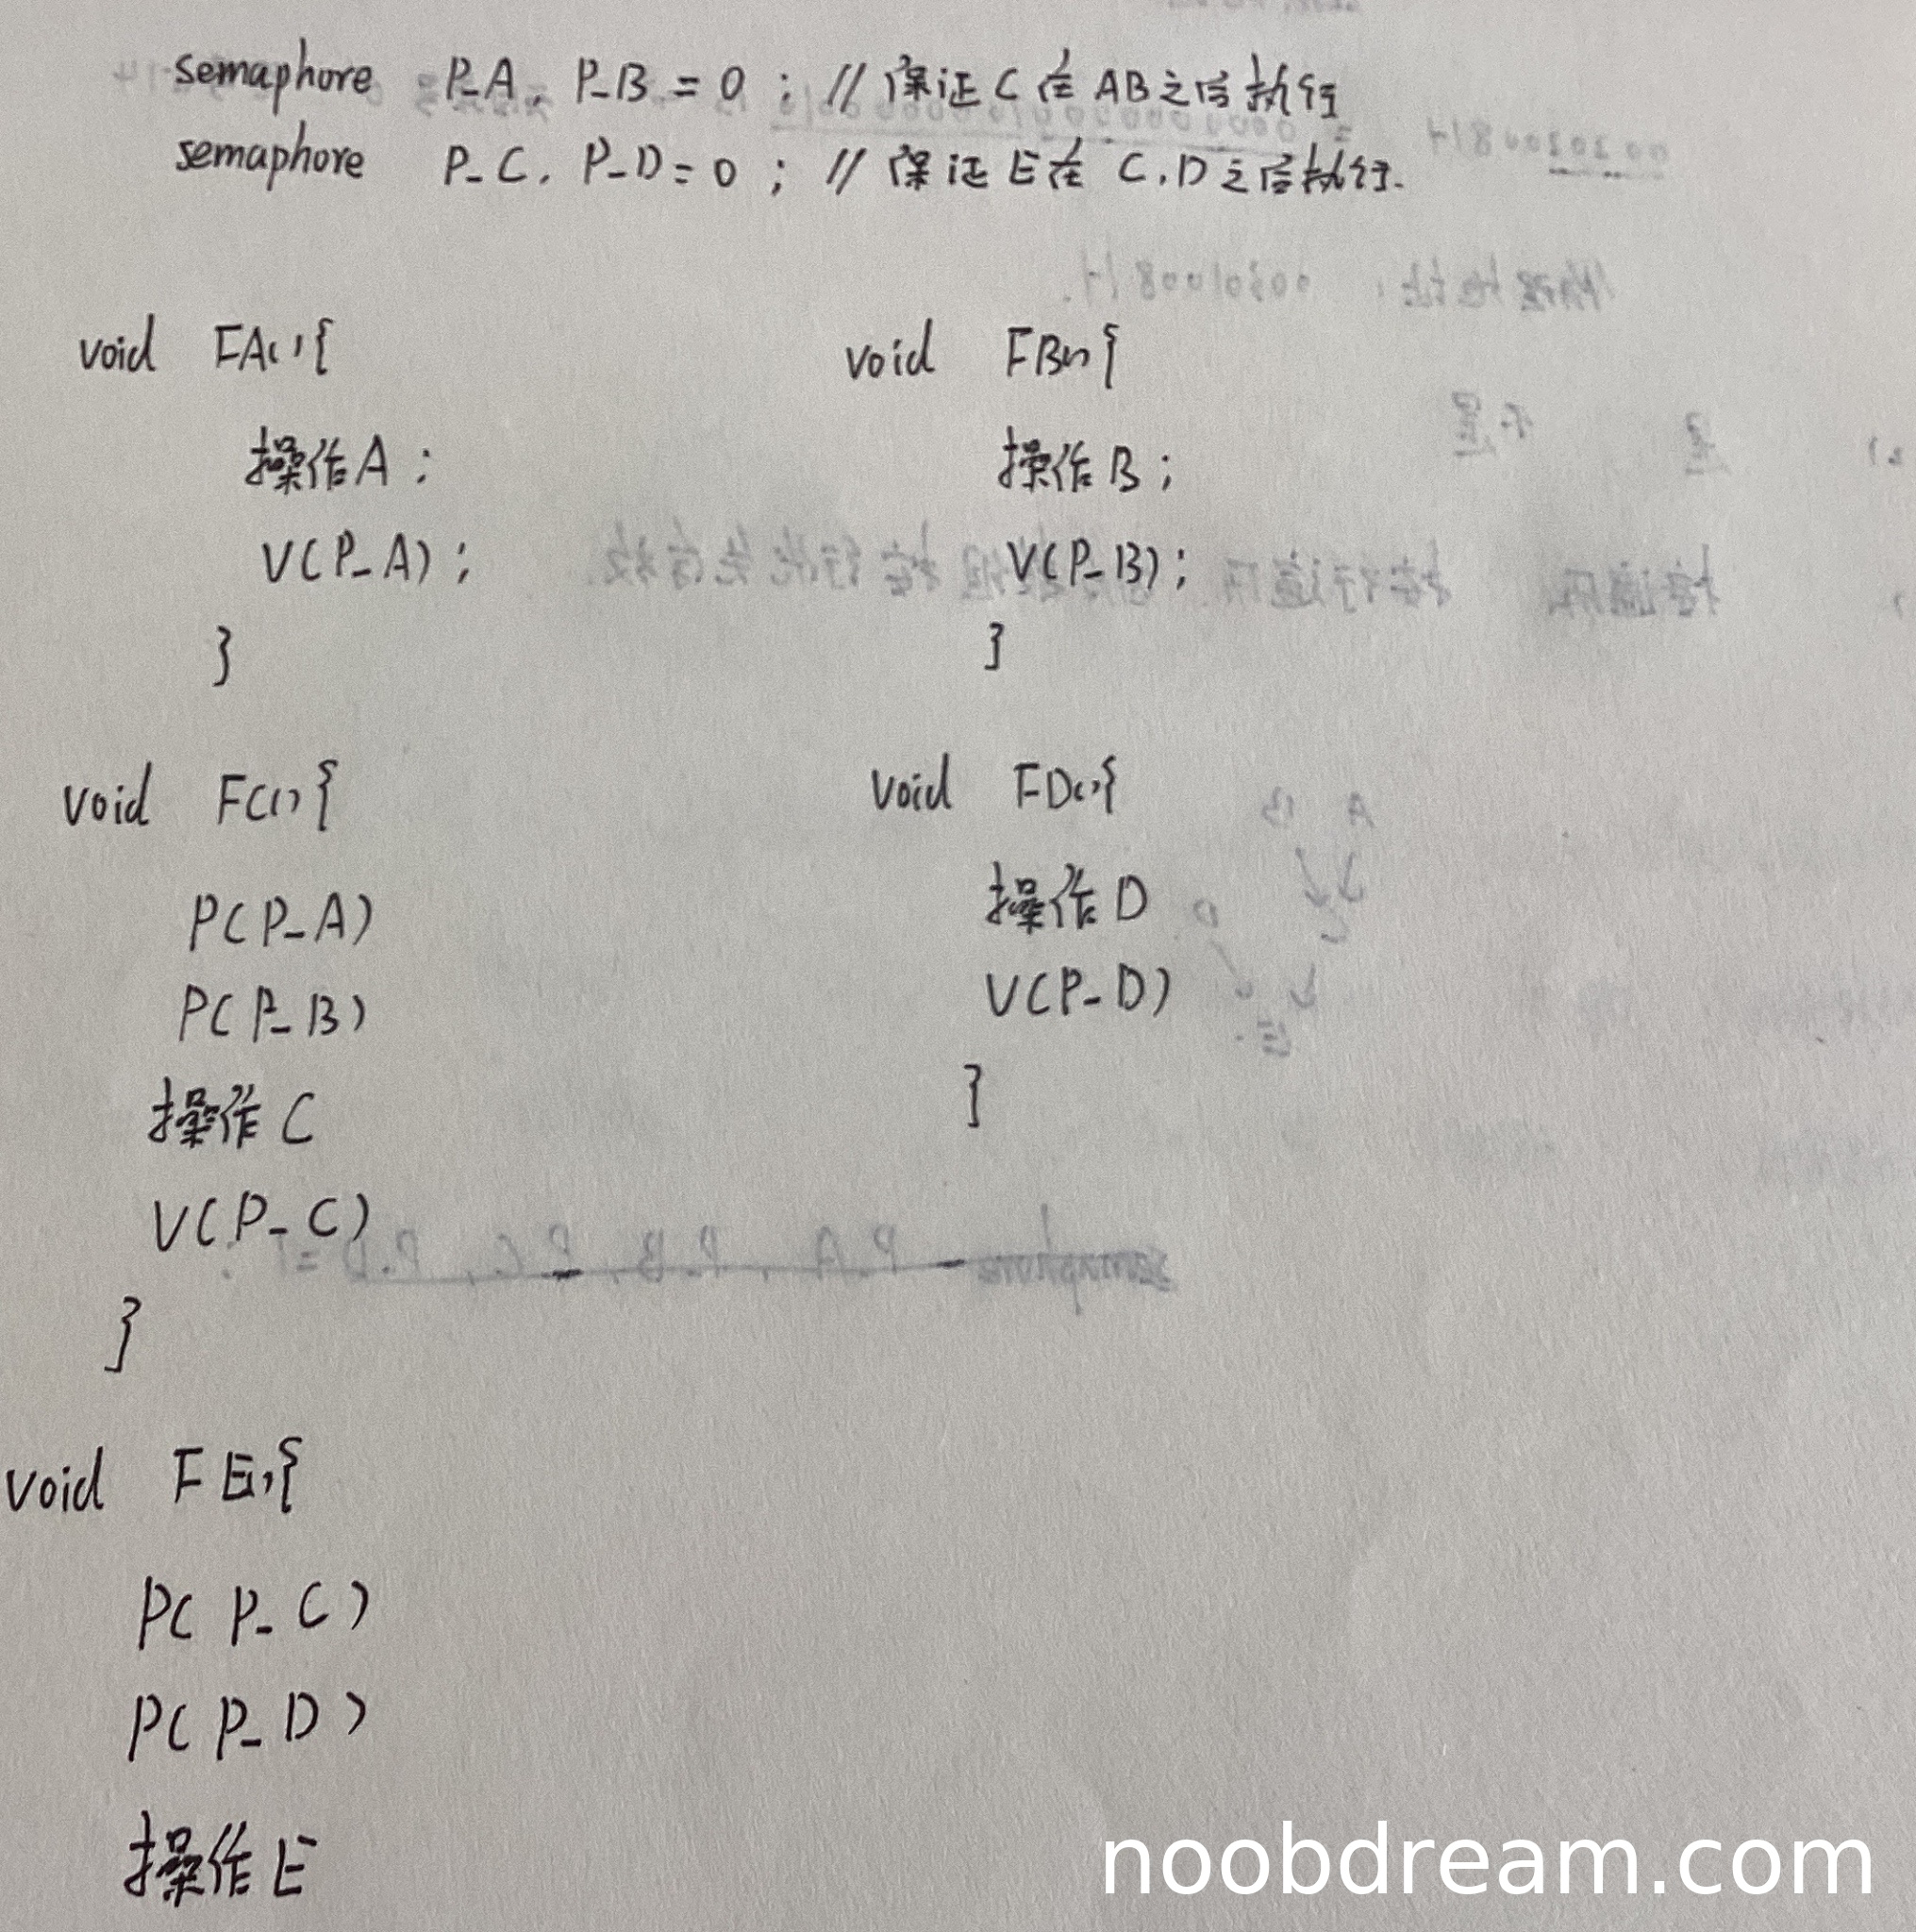 semaphore P_A, P_B = 0 ; // 保证C在AB之后执行
semaphore P_C, P_D = 0 ; // 保证E在 C,D之后执行.
void FA(){
操作A ;
V(P_A) ;
}
void FB(){
操作B ;
V(P_B) ;
}
void FC(){
P(P_A)
P(P_B)
操作C
V(P_C)
}
void FD(){
操作D
V(P_D)
}
void FE(){
P(P_C)
P(P_D)
操作E
noobdream.com